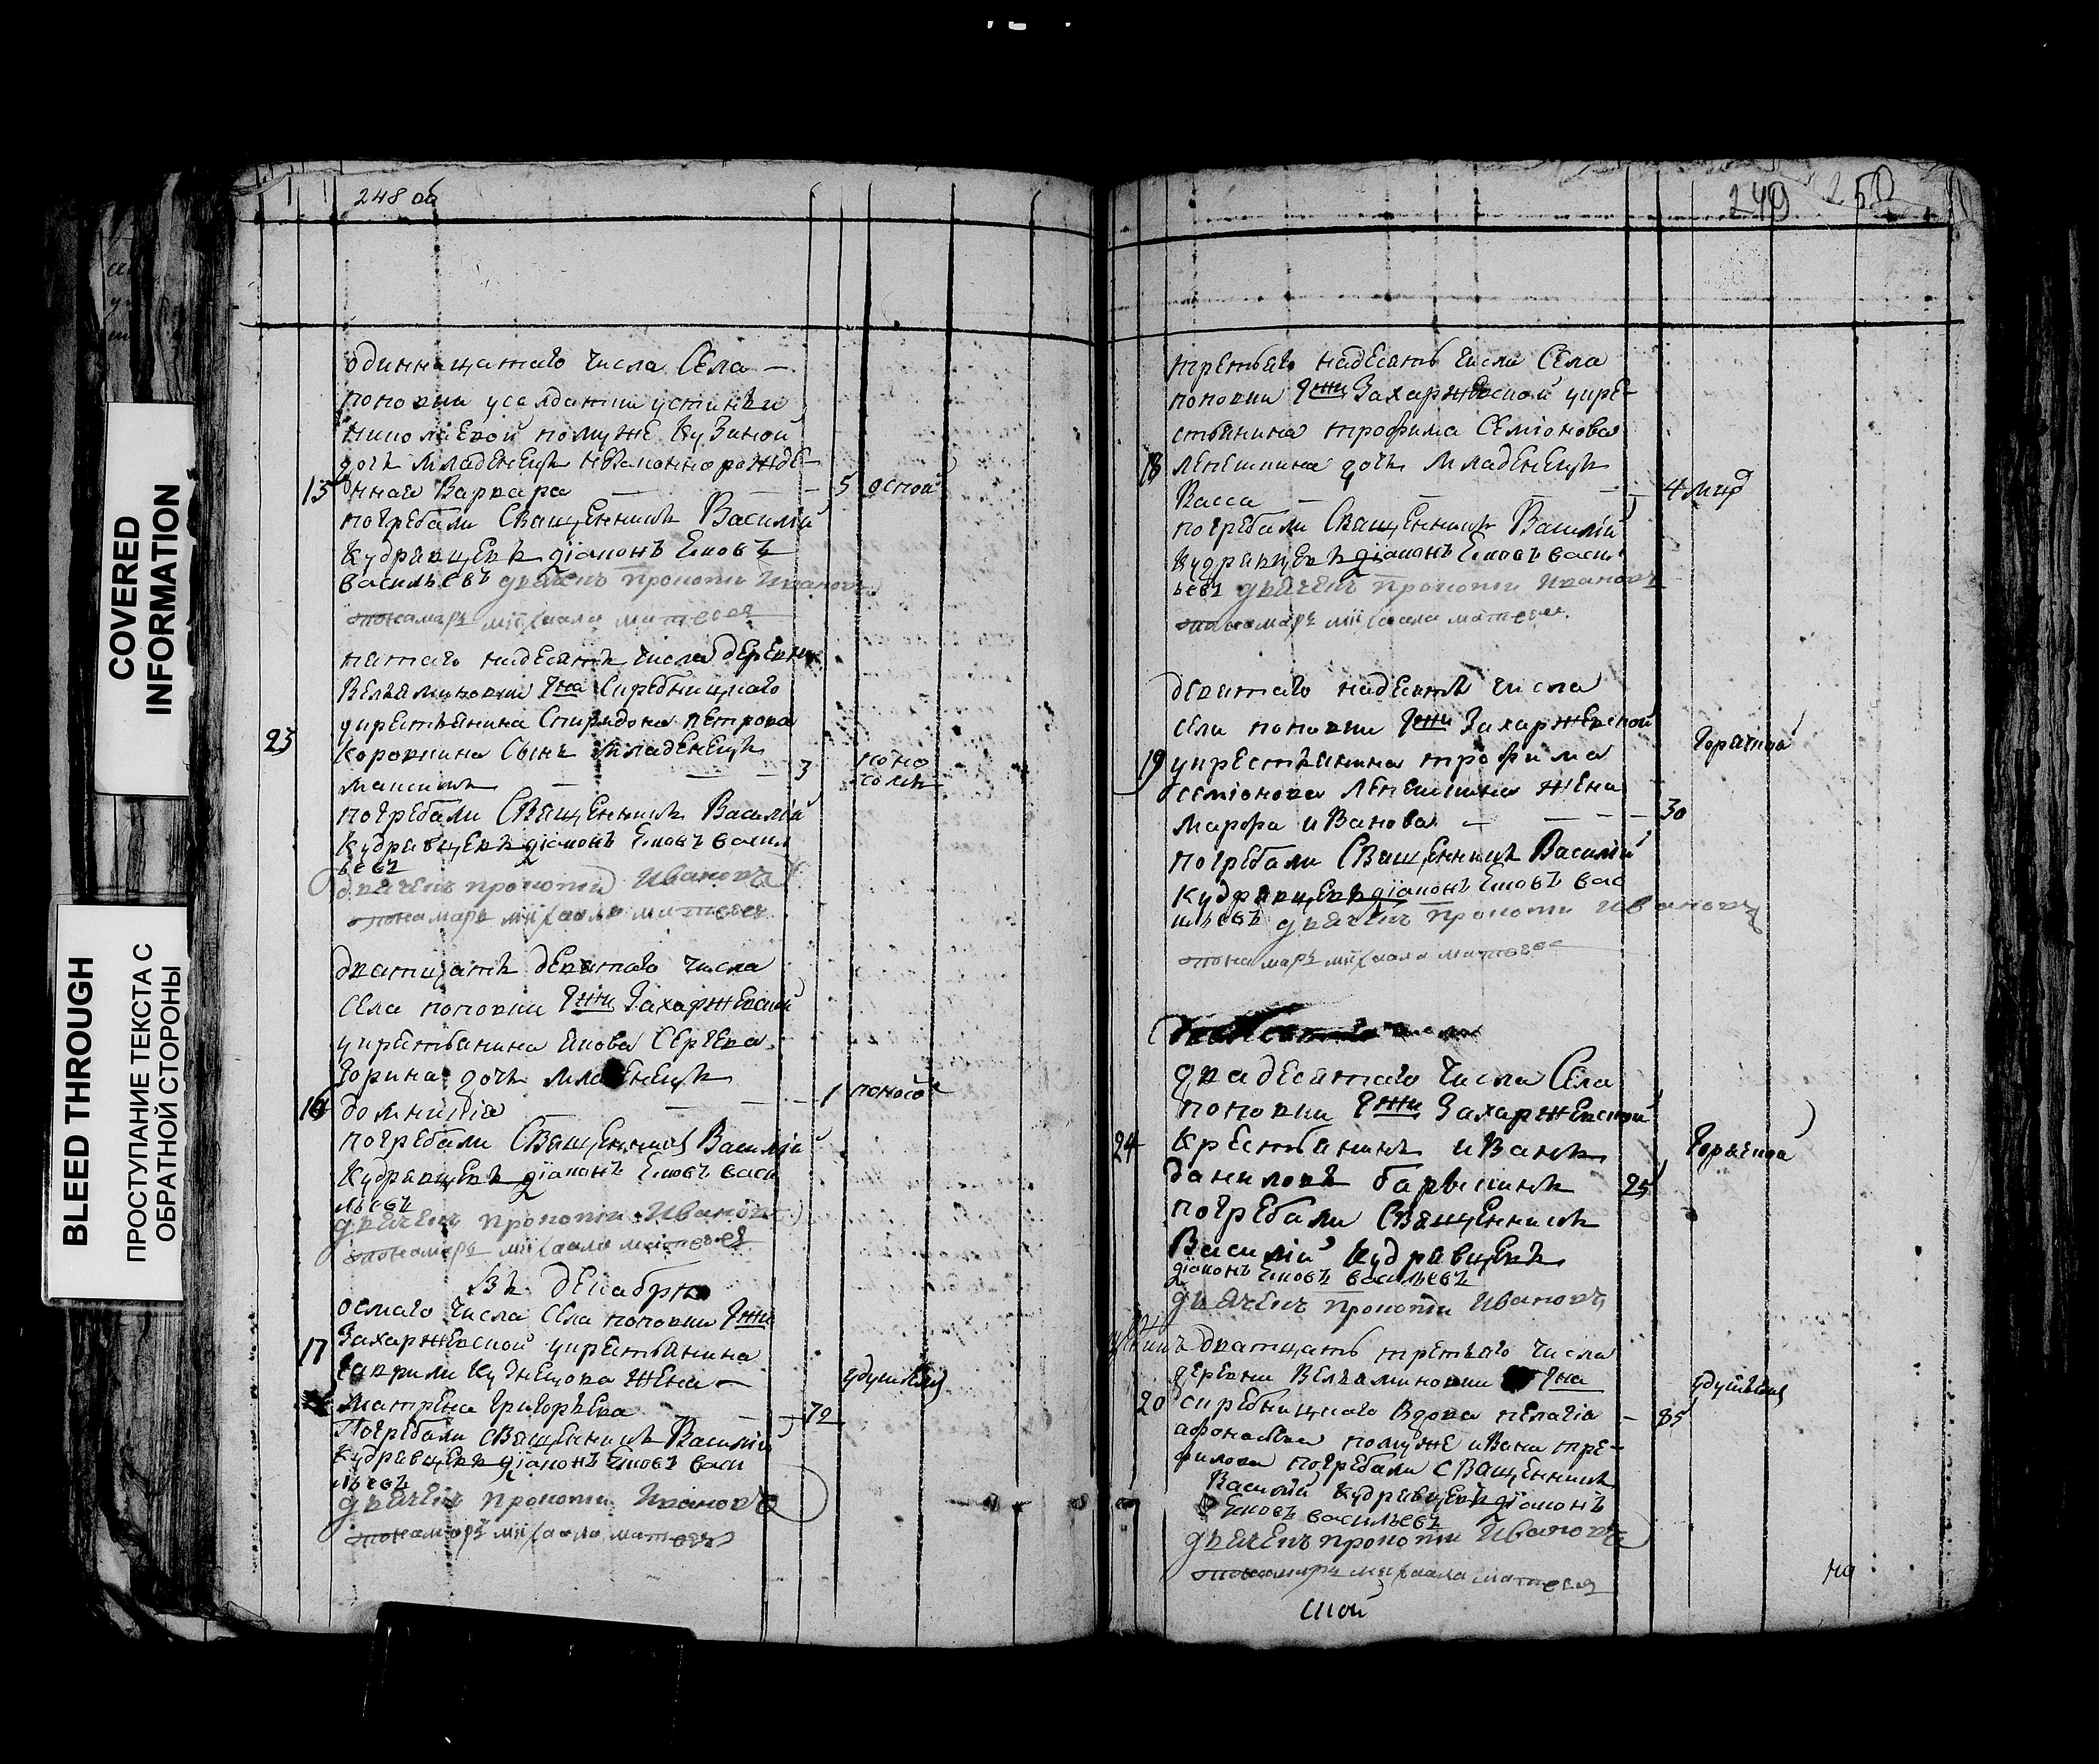 COVERED
INFORMATION
BLEED THROUGH
ПРОСТУПАНИЕ ТЕКСТА С
ОБРАТНОЙ СТОРОНЫ
248 об
одиннацатаго числа Села —
поповки у салдатки устиньи
николаевой по муже Кузиной
дочь Младенецъ незаконнорожде-
15 ннаѧ Варвара — — — 5 оспой
погребали Священникъ Василій
Кудрявцевъ діаконъ Іаковъ
васильевъ дьячекъ Прокопи Ивановъ
пономарь михаала матвеея
пятаго надесять числа деревни
Вельяминовки Гна
крестьянина Спиридона петрова
23 Коровкина Сынъ Младенецъ
Максимъ — — 3 поно
сомъ
погребали Священникъ Василій
Кудрявцевъ діаконъ Іаковъ васил
ьевъ
дьячекъ прокопи Ивановъ
пономарь михаала матвеея
дватцать девятаго числа
села поповки Гжи Захаржевской
крестьянина Якова Сергева
Зорина дочь младенецъ
16 домникіа — — — 1 поносо
погребали Священникъ Василій
Кудрявцевъ діаконъ Іаковъ васи
льевъ
дьячекъ прокопи Ивановъ
пономарь михаала матвеея
Въ декабрѣ
осмаго числа Села поповки Гжи
Захаржевской крестьянина
17 Гаврилы Кузнецова Жена — удушья
Матрена Григорьева — 72
Погребали священникъ Василій
Кудрявцевъ діаконъ Іаковъ васи
льевъ
дьячекъ прокопи Ивановъ
пономарь михаала матвеея
249 250
третьяго надесять числа Села
поповки Гжи Захаржевской кре-
стьянина трофима Семіонова
18 дочь Младенецъ
Васса — — — 4 мир
погребали Священникъ Василій
Кудрявцевъ діаконъ Іаковъ васи
ьевъ дьячекъ прокопи Ивановъ
пономарь михаала матвеея
девятаго надесять числа
села поповки Гжи Захаржевской
19 крестьянина трофима горячкой
семіонова жена
марфа иванова — — — 30
погребали Священникъ Василій
Кудрявцевъ діаконъ Іаковъ вас
ильевъ дьячекъ прокопи Ивановъ
пономарь михаала матвеея
двадесятаго числа Села
поповки Гжи Захаржевской
24 крестьянинъ иванъ горячкой
даниловъ 25
погребали Священникъ
Василій Кудрявцевъ
діаконъ Іаковъ васильевъ
дьячекъ прокопи Ивановъ
дватцать третьяго числа
деревни Вельяминовки Гна удушья
20 вдова пелагіа — 85
афонасьева по муже ивана тре-
филова погребали священникъ
Василій Кудрявцевъ діаконъ
Іаковъ васильевъ
дьячекъ прокопи Ивановъ
пономарь михаала матвеея